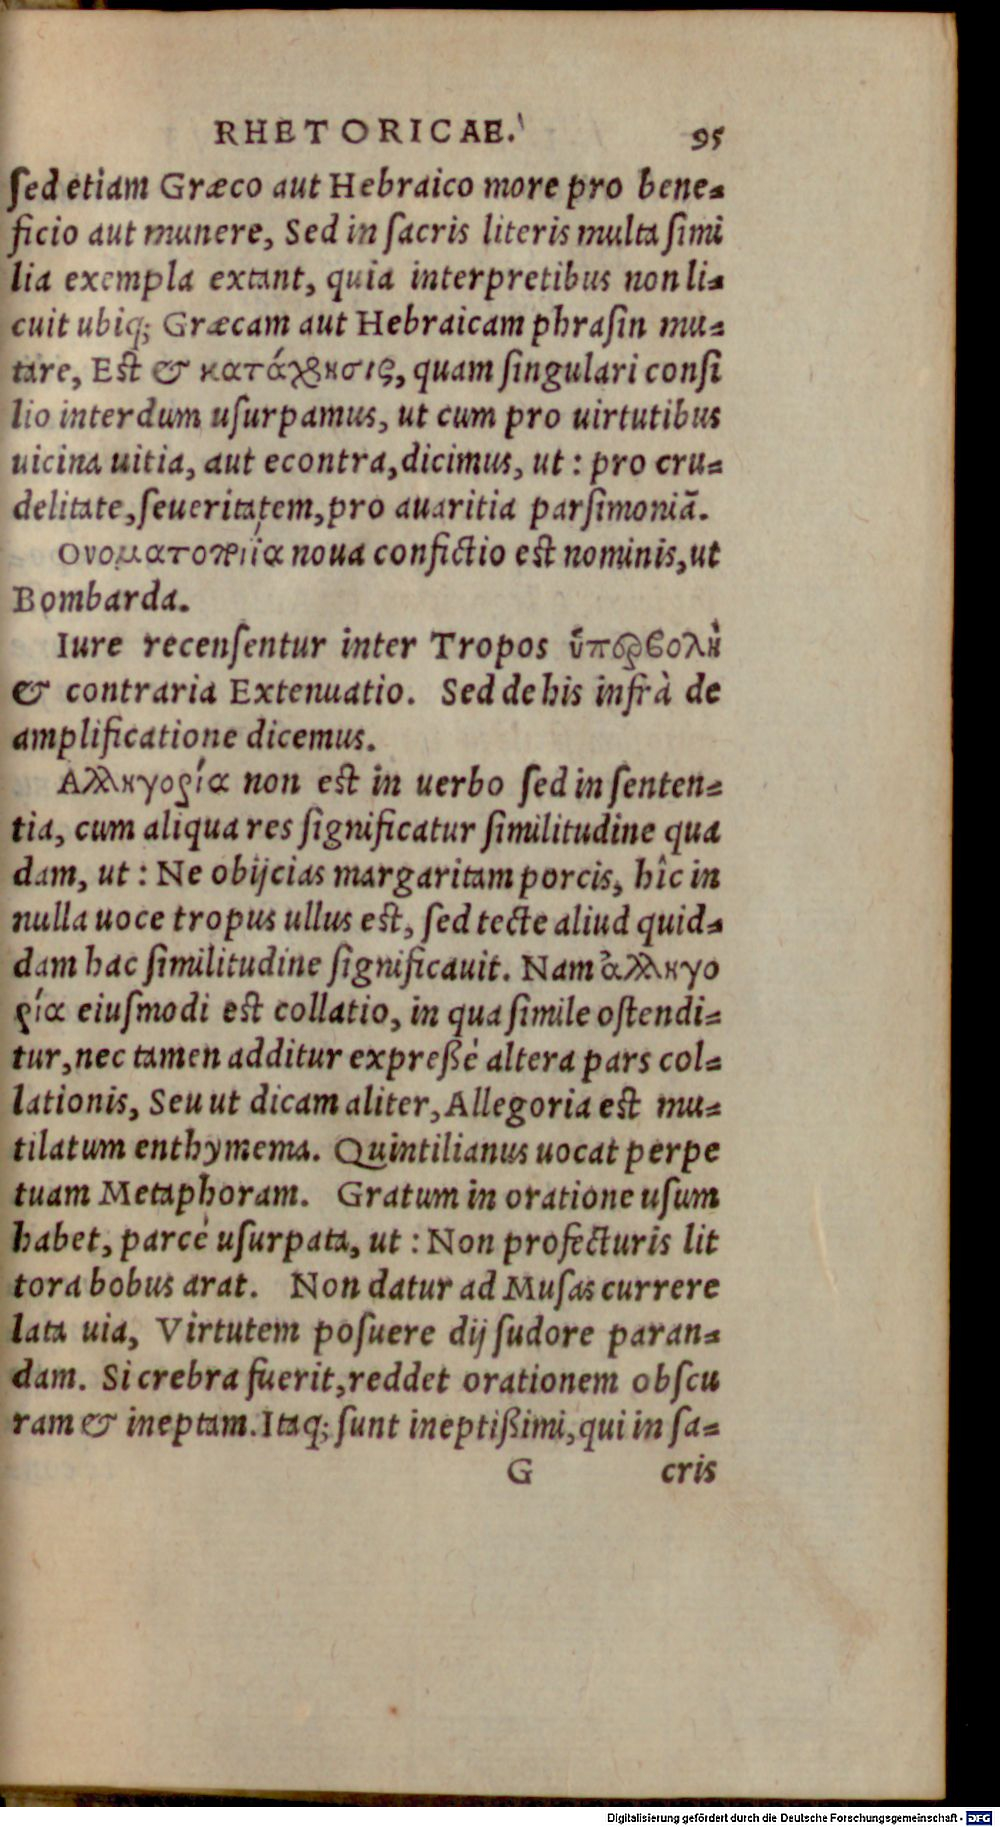 RHETORICAE. 95
ſed etiam Græco aut Hebraico more pro bene-
ficio aut munere, Sed in ſacris literis multa ſimi
lia exempla extant, quia interpretibus non li-
cuit ubiq; Græcam aut Hebraicam phraſin mu-
tare, Eſt & κατάχρησις, quam ſingulari conſi
lio interdum uſurpamus, ut cum pro uirtutibus
uicina uitia, aut econtra, dicimus, ut: pro cru-
delitate, ſeueritatem, pro auaritia parſimoniā.
Ονοματοποιΐα noua confictio eſt nominis, ut
Bombarda.
Iure recenſentur inter Tropos ὑπερβολὴ
& contraria Extenuatio. Sed de his infrà de
amplificatione dicemus.
Αλληγορία non eſt in uerbo ſed in ſenten-
tia, cum aliqua res ſignificatur ſimilitudine qua
dam, ut: Ne obijcias margaritam porcis, hîc in
nulla uoce tropus ullus eſt, ſed tecte aliud quid-
dam hac ſimilitudine ſignificauit. Nam ἀλληγο
ρία eiuſmodi eſt collatio, in qua ſimile oſtendi-
tur, nec tamen additur expreßè altera pars col-
lationis, Seu ut dicam aliter, Allegoria eſt mu-
tilatum enthymema. Quintilianus uocat perpe
tuam Metaphoram. Gratum in oratione uſum
habet, parcè uſurpata, ut: Non profecturis lit
tora bobus arat. Non datur ad Muſas currere
lata uia, Virtutem poſuere dij ſudore paran-
dam. Si crebra fuerit, reddet orationem obſcu
ram & ineptam. Itaq; ſunt ineptißimi, qui in ſa-
G cris
Digitalisierung gefördert durch die Deutsche Forschungsgemeinschaft - DFG